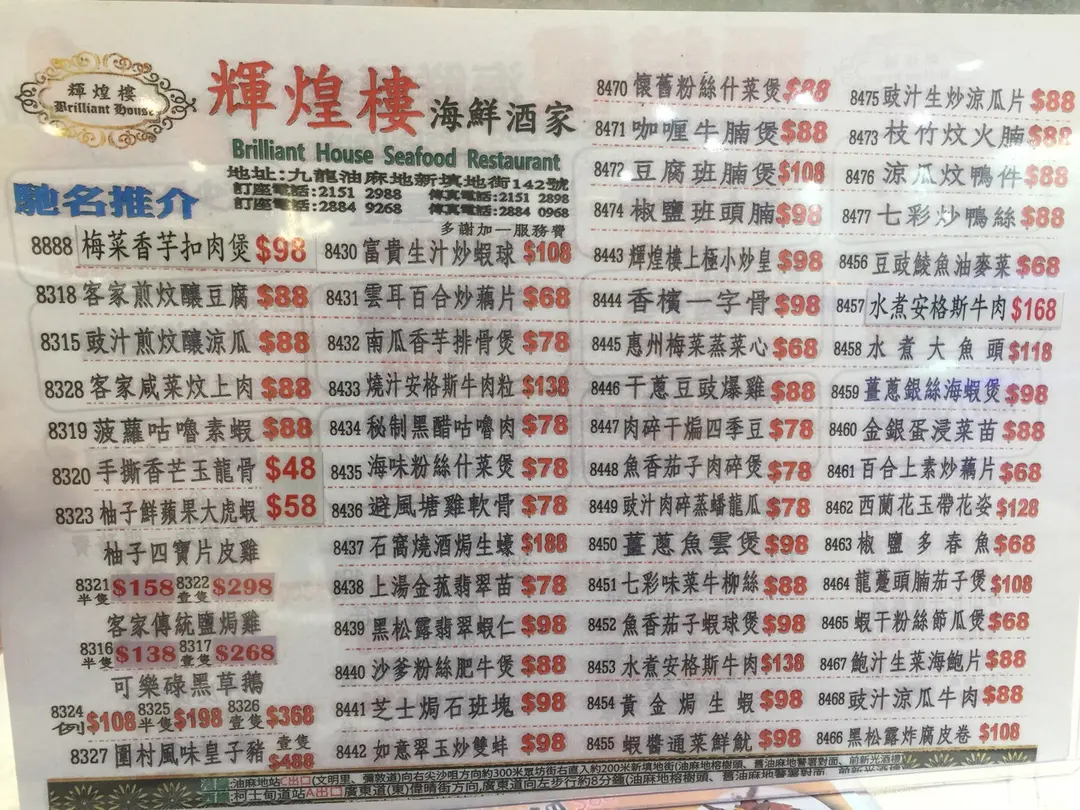 輝煌樓
Brilliant House
輝煌樓海鮮酒家
Brilliant House Seafood Restaurant
地址:九龍油麻地新填地街142號
訂座電話:2151 2988 傳真電話:2151 2898
訂座電話:2884 9268 傳真電話:2884 0968
多謝加一服務費
馳名推介
8888 梅菜香芋扣肉煲 $98
8318 客家煎炆釀豆腐 $88
8315 豉汁煎炆釀涼瓜 $88
8328 客家咸菜炆上肉 $88
8319 菠蘿咕嚕素蝦 $88
8320 手撕香芒玉龍骨 $48
8323 柚子鮮蘋果大虎蝦 $58
柚子四寶片皮雞
8321 半隻 $158 8322 壹隻 $298
客家傳統鹽焗雞
8316 半隻 $138 8317 壹隻 $268
可樂碌黑草鵝
8324 例 $108 8325 半隻 $198 8326 壹隻 $368
8327 圍村風味皇子豬 壹隻 $488
8430 富貴生汁炒蝦球 $108
8431 雲耳百合炒藕片 $68
8432 南瓜香芋排骨煲 $78
8433 燒汁安格斯牛肉粒 $138
8434 秘制黑醋咕嚕肉 $78
8435 海味粉絲什菜煲 $78
8436 避風塘雞軟骨 $78
8437 石窩燒酒焗生蠔 $188
8438 上湯金菰翡翠苗 $78
8439 黑松露翡翠蝦仁 $98
8440 沙爹粉絲肥牛煲 $88
8441 芝士焗石班塊 $98
8442 如意翠玉炒雙蚌 $98
8470 懷舊粉絲什菜煲 $88
8471 咖喱牛腩煲 $88
8472 豆腐班腩煲 $108
8474 椒鹽班頭腩 $98
8443 輝煌樓上極小炒皇 $98
8444 香檳一字骨 $98
8445 惠州梅菜蒸菜心 $68
8446 干蔥豆豉爆雞 $88
8447 肉碎干煸四季豆 $78
8448 魚香茄子肉碎煲 $78
8449 豉汁肉碎蒸蟠龍瓜 $78
8450 薑蔥魚雲煲 $98
8451 七彩味菜牛柳絲 $88
8452 魚香茄子蝦球煲 $98
8453 水煮安格斯牛肉 $138
8454 黃金焗生蝦 $98
8455 蝦醬通菜鮮魷 $98
8475 豉汁生炒涼瓜片 $88
8473 枝竹炆火腩 $88
8476 涼瓜炆鴨件 $88
8477 七彩炒鴨絲 $88
8456 豆豉鯪魚油麥菜 $68
8457 水煮安格斯牛肉 $168
8458 水煮大魚頭 $118
8459 薑蔥銀絲海蝦煲 $98
8460 金銀蛋浸菜苗 $88
8461 百合上素炒藕片 $68
8462 西蘭花玉帶花姿 $128
8463 椒鹽多春魚 $68
8464 龍躉頭腩茄子煲 $108
8465 蝦干粉絲節瓜煲 $68
8467 鮑汁生菜海鮑片 $88
8468 豉汁涼瓜牛肉 $88
8466 黑松露炸腐皮卷 $108
油麻地站C出口(文明里、彌敦道)向右尖沙咀方向約300米眾坊街右直入約200米新填地街(油麻地榕樹頭、舊油麻地警署對面、前新光酒樓)
柯士甸道站A出口廣東道(東)偉晴街方向,廣東道向左步行約8分鐘(油麻地榕樹頭、舊油麻地警署對面、前新光酒樓)